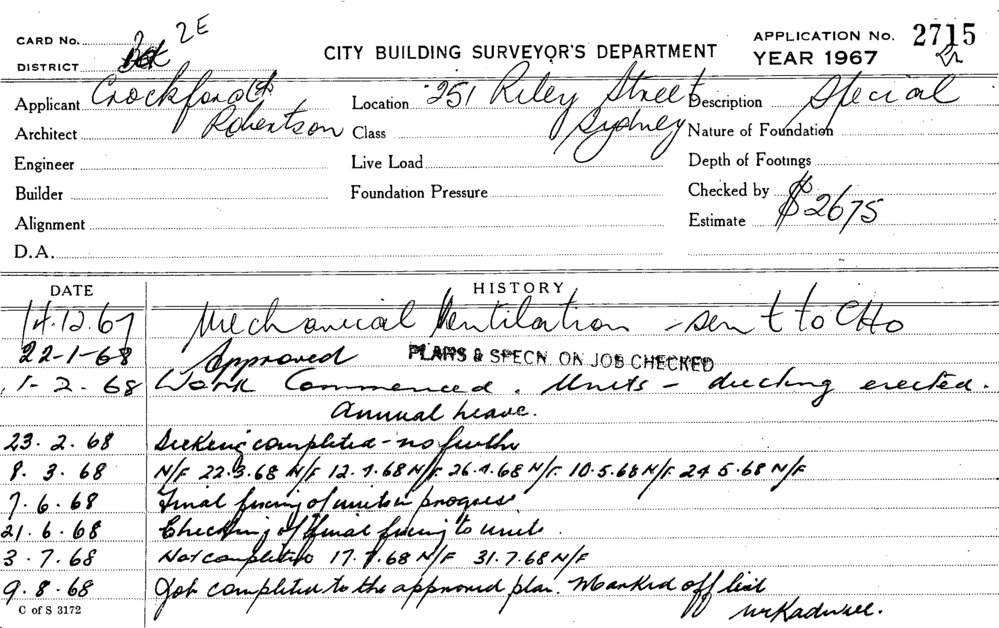 CARD No. 2E
DISTRICT
CITY BUILDING SURVEYOR'S DEPARTMENT
APPLICATION No. 2715
YEAR 1967
Applicant Crockford &
Location 251 Riley Street
Description Special
Architect Robertson
Class Sydney
Nature of Foundation
Engineer
Live Load
Depth of Footings
Builder
Foundation Pressure
Checked by
Alignment
Estimate $2675
D.A.
DATE HISTORY
14.12.67 Mechanical Ventilation - sent to CHO
22-1-68 Approved PLANS & SPECN. ON JOB CHECKED
1-2.68 Work Commenced. Units - ducting erected.
Annual leave.
23.2.68 Ducking completed - no further
8.3.68 N/F 22.3.68 N/F 12.4.68 N/F 26.4.68 N/F 10.5.68 N/F 24.5.68 N/F
7.6.68 Final fixing of units in progress
21.6.68 Checking of final fixing to units.
3.7.68 Not completed 17.7.68 N/F 31.7.68 N/F
9.8.68 Job completed to the approved plan. Marked off list
C of S 3172